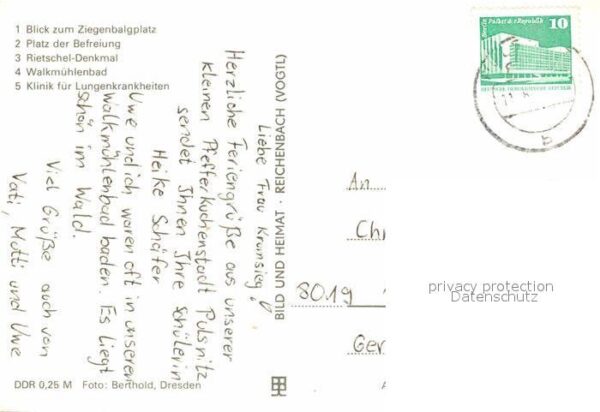 1 Blick zum Ziegenbalgplatz
2 Platz der Befreiung
3 Rietschel-Denkmal
4 Walkmühlenbad
5 Klinik für Lungenkrankheiten
Liebe Frau Kromsieg!
Herzliche Feriengrüße aus unserer
kleinen Pfefferkuchenstadt Pulsnitz
sendet Ihnen Ihre Schülerin
Heike Schäfer
Uwe und ich waren oft in unserem
Walkmühlenbad baden. Es liegt
schön im Wald.
Viel Grüße auch von
Vati, Mutti und Uwe
DDR 0,25 M Foto: Berthold, Dresden
BILD UND HEIMAT · REICHENBACH (VOGTL)
Berlin, Palast der Republik
10
DEUTSCHE DEMOKRATISCHE REPUBLIK
An
Ch
8019
Ger
privacy protection
Datenschutz